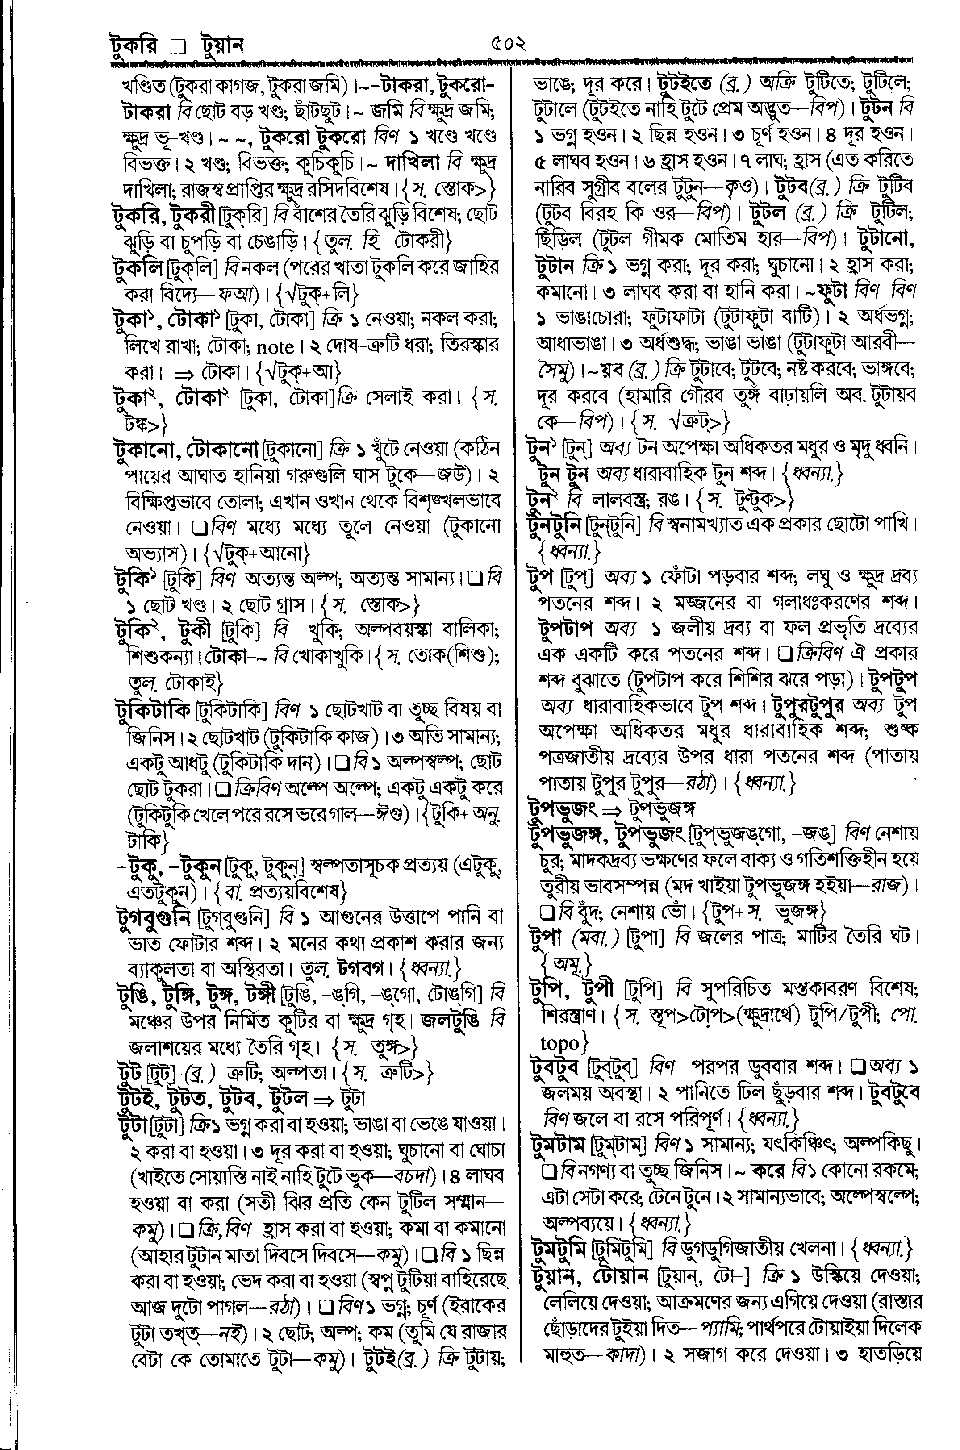 টুকরি □ টুয়ান
৫০২
খণ্ডিত (টুকরা কাগজ, টুকরা জমি)। ~-টাকরা, টুকরো-
টাকরা বি ছোট বড় খণ্ড; ছাঁটছুট। ~ জমি বি ক্ষুদ্র জমি;
ক্ষুদ্র ভূ-খণ্ড। ~ ~, টুকরো টুকরো বিণ ১ খণ্ডে খণ্ডে
বিভক্ত। ২ খণ্ড; বিভক্ত; কুচিকুচি। ~ দাখিলা বি ক্ষুদ্র
দাখিলা; রাজস্ব প্রাপ্তির ক্ষুদ্র রসিদবিশেষ। {স. স্তোক>}
টুকরি, টুকরী [টুক্‌রি] বি বাঁশের তৈরি ঝুড়ি বিশেষ; ছোট
ঝুড়ি বা চুপড়ি বা চেঙাড়ি। {তুল. হি টোকরী}
টুকলি [টুক্‌লি] বি নকল (পরের খাতা টুকলি করে জাহির
করা বিদ্যে—ফআ)। {√টুক্+লি}
টুকা১, টোকা১ [টুকা, টোকা] ক্রি ১ নেওয়া; নকল করা;
লিখে রাখা; টোকা; note। ২ দোষ-ত্রুটি ধরা; তিরস্কার
করা। ⇒ টোকা। {√টুক্+আ}
টুকা২, টোকা২ [টুকা, টোকা] ক্রি সেলাই করা। {স.
টঙ্ক>}
টুকানো, টোকানো [টুকানো] ক্রি ১ খুঁটে নেওয়া (কঠিন
পায়ের আঘাত হানিয়া গরুগুলি ঘাস টুকে—জউ)। ২
বিক্ষিপ্তভাবে তোলা; এখান ওখান থেকে বিশৃঙ্খলভাবে
নেওয়া। □ বিণ মধ্যে মধ্যে তুলে নেওয়া (টুকানো
অভ্যাস)। {√টুক্+আনো}
টুকি১ [টুকি] বিণ অত্যন্ত অল্প; অত্যন্ত সামান্য। □ বি
১ ছোট খণ্ড। ২ ছোট গ্রাস। {স. স্তোক>}
টুকি২, টুকী [টুকি] বি খুকি; অল্পবয়স্কা বালিকা;
শিশুকন্যা। টোকা—~ বি খোকাখুকি। {স. তোক(শিশু);
তুল. টোকাই}
টুকিটাকি [টুকিটাকি] বিণ ১ ছোটখাট বা তুচ্ছ বিষয় বা
জিনিস। ২ ছোটখাট (টুকিটাকি কাজ)। ৩ অতি সামান্য;
একটু আধটু (টুকিটাকি দান)। □ বি ১ অল্পস্বল্প; ছোট
ছোট টুকরা। □ ক্রিবিণ অল্পে অল্পে; একটু একটু করে
(টুকিটুকি খেলে পরে রসে ভরে গাল—ঈগু)। {টুকি+ অনু.
টাকি}
-টুকু, -টুকুন [টুকু, টুকুন্] স্বল্পতাসূচক প্রত্যয় (এটুকু,
এতটুকুন)। {বা. প্রত্যয়বিশেষ}
টুগবুগুনি [টুগ্‌বুগুনি] বি ১ আগুনের উত্তাপে পানি বা
ভাত ফোটার শব্দ। ২ মনের কথা প্রকাশ করার জন্য
ব্যাকুলতা বা অস্থিরতা। তুল. টগবগ। {ধ্বন্যা.}
টুঙি, টুঙ্গি, টুঙ্গ, টঙ্গী [টুঙি, -ঙ্‌গি, -ঙ্‌গো, টোঙ্‌গি] বি
মঞ্চের উপর নির্মিত কুটির বা ক্ষুদ্র গৃহ। জলটুঙি বি
জলাশয়ের মধ্যে তৈরি গৃহ। {স. তুঙ্গ>}
টুট [টুট্] (ব্র.) ত্রুটি; অল্পতা। {স. ত্রুটি>}
টুটই, টুটত, টুটব, টুটল ⇒ টুটা
টুটা [টুটা] ক্রি ১ ভগ্ন করা বা হওয়া; ভাঙা বা ভেঙে যাওয়া।
২ করা বা হওয়া। ৩ দূর করা বা হওয়া; ঘুচানো বা ঘোচা
(খাইতে সোয়াস্তি নাই নাহি টুটে ভুক—বচদা)। ৪ লাঘব
হওয়া বা করা (সতী ঝির প্রতি কেন টুটিল সম্মান—
কমু)। □ ক্রি,বিণ হ্রাস করা বা হওয়া; কমা বা কমানো
(আহার টুটান মাতা দিবসে দিবসে—কমু)। □ বি ১ ছিন্ন
করা বা হওয়া; ভেদ করা বা হওয়া (স্বপ্ন টুটিয়া বাহিরেছে
আজ দুটো পাগল—রঠা)। □ বিণ ১ ভগ্ন; চূর্ণ (ইরাকের
টুটা তখ্‌ত্—নই)। ২ ছোট; অল্প; কম (তুমি যে রাজার
বেটা কে তোমাতে টুটা—কমু)। টুটই (ব্র.) ক্রি টুটায়;
ভাঙে; দূর করে। টুটইতে (ব্র.) অক্রি টুটিতে; টুটিলে;
টুটালে (টুটইতে নাহি টুটে প্রেম অদ্ভুত—বিপ)। টুটন বি
১ ভগ্ন হওন। ২ ছিন্ন হওন। ৩ চূর্ণ হওন। ৪ দূর হওন।
৫ লাঘব হওন। ৬ হ্রাস হওন। ৭ লাঘ; হ্রাস (এত করিতে
নারিব সুগ্রীব বলের টুটুন—কৃও)। টুটব(ব্র.) ক্রি টুটিব
(টুটব বিরহ কি ওর—বিপ)। টুটল (ব্র.) ক্রি টুটিল;
ছিঁড়িল (টুটল গীমক মোতিম হার—বিপ)। টুটানো,
টুটান ক্রি ১ ভগ্ন করা; দূর করা; ঘুচানো। ২ হ্রাস করা;
কমানো। ৩ লাঘব করা বা হানি করা। ~ফুটা বিণ বিণ
১ ভাঙাচোরা; ফুটাফাটা (টুটাফুটা বাটি)। ২ অর্ধভগ্ন;
আধাভাঙা। ৩ অর্ধশুদ্ধ; ভাঙা ভাঙা (টুটাফুটা আরবী—
সৈমু)। ~য়ব (ব্র.) ক্রি টুটাবে; টুটবে; নষ্ট করবে; ভাঙ্গবে;
দূর করবে (হামারি গৌরব তুঙ্গঁ বাঢ়ায়লি অব. টুটায়ব
কে—বিপ)। {স. √ত্রুট্>}
টুন১ [টুন্] অব্য টন অপেক্ষা অধিকতর মধুর ও মৃদু ধ্বনি।
টুন টুন অব্য ধারাবাহিক টুন শব্দ। {ধ্বন্যা.}
টুন২ বি লালবস্ত্র; রঙ। {স. টুন্টুক>}
টুনটুনি [টুন্‌টুনি] বি স্বনামখ্যাত এক প্রকার ছোটো পাখি।
{ধ্বন্যা.}
টুপ [টুপ্] অব্য ১ ফোঁটা পড়বার শব্দ; লঘু ও ক্ষুদ্র দ্রব্য
পতনের শব্দ। ২ মজ্জনের বা গলাধঃকরণের শব্দ।
টুপটাপ অব্য ১ জলীয় দ্রব্য বা ফল প্রভৃতি দ্রব্যের
এক একটি করে পতনের শব্দ। □ ক্রিবিণ ঐ প্রকার
শব্দ বুঝাতে (টুপটাপ করে শিশির ঝরে পড়া)। টুপটুপ
অব্য ধারাবাহিকভাবে টুপ শব্দ। টুপুরটুপুর অব্য টুপ
অপেক্ষা অধিকতর মধুর ধারাবাহিক শব্দ; শুষ্ক
পত্রজাতীয় দ্রব্যের উপর ধারা পতনের শব্দ (পাতায়
পাতায় টুপুর টুপুর—রঠা)। {ধ্বন্যা.}
টুপভুজং ⇒ টুপভুজঙ্গ
টুপভুজঙ্গ, টুপভুজং [টুপ্‌ভুজঙ্‌গো, -জঙ্] বিণ নেশায়
চুর; মাদকদ্রব্য ভক্ষণের ফলে বাক্য ও গতিশক্তিহীন হয়ে
তুরীয় ভাবসম্পন্ন (মদ খাইয়া টুপভুজঙ্গ হইয়া—রাজ)।
□ বি বুঁদ; নেশায় ভোঁ। {টুপ+স. ভুজঙ্গ}
টুপা (মবা.) [টুপা] বি জলের পাত্র; মাটির তৈরি ঘট।
{অমূ.}
টুপি, টুপী [টুপি] বি সুপরিচিত মস্তকাবরণ বিশেষ;
শিরস্ত্রাণ। {স. স্তূপ>টোপ>(ক্ষুদ্রার্থে) টুপি/টুপী; পো.
topo}
টুবটুব [টুব্‌টুব্] বিণ পরপর ডুববার শব্দ। □ অব্য ১
জলময় অবস্থা। ২ পানিতে ঢিল ছুঁড়বার শব্দ। টুবটুবে
বিণ জলে বা রসে পরিপূর্ণ। {ধ্বন্যা.}
টুমটাম [টুম্‌টাম্] বিণ ১ সামান্য; যৎকিঞ্চিৎ; অল্পকিছু।
□ বি নগণ্য বা তুচ্ছ জিনিস। ~ করে বি ১ কোনো রকমে;
এটা সেটা করে; টেনে টুনে। ২ সামান্যভাবে; অল্পেস্বল্পে;
অল্পব্যয়ে। {ধ্বন্যা.}
টুমটুমি [টুম্‌টুমি] বি ডুগডুগিজাতীয় খেলনা। {ধ্বন্যা.}
টুয়ান, টোয়ান [টুয়ান্, টো-] ক্রি ১ উস্কিয়ে দেওয়া;
লেলিয়ে দেওয়া; আক্রমণের জন্য এগিয়ে দেওয়া (রাস্তার
ছোঁড়াদের টুইয়া দিত—প্যামি; পার্থপরে টোয়াইয়া দিলেক
মাহুত—কাদা)। ২ সজাগ করে দেওয়া। ৩ হাতড়িয়ে